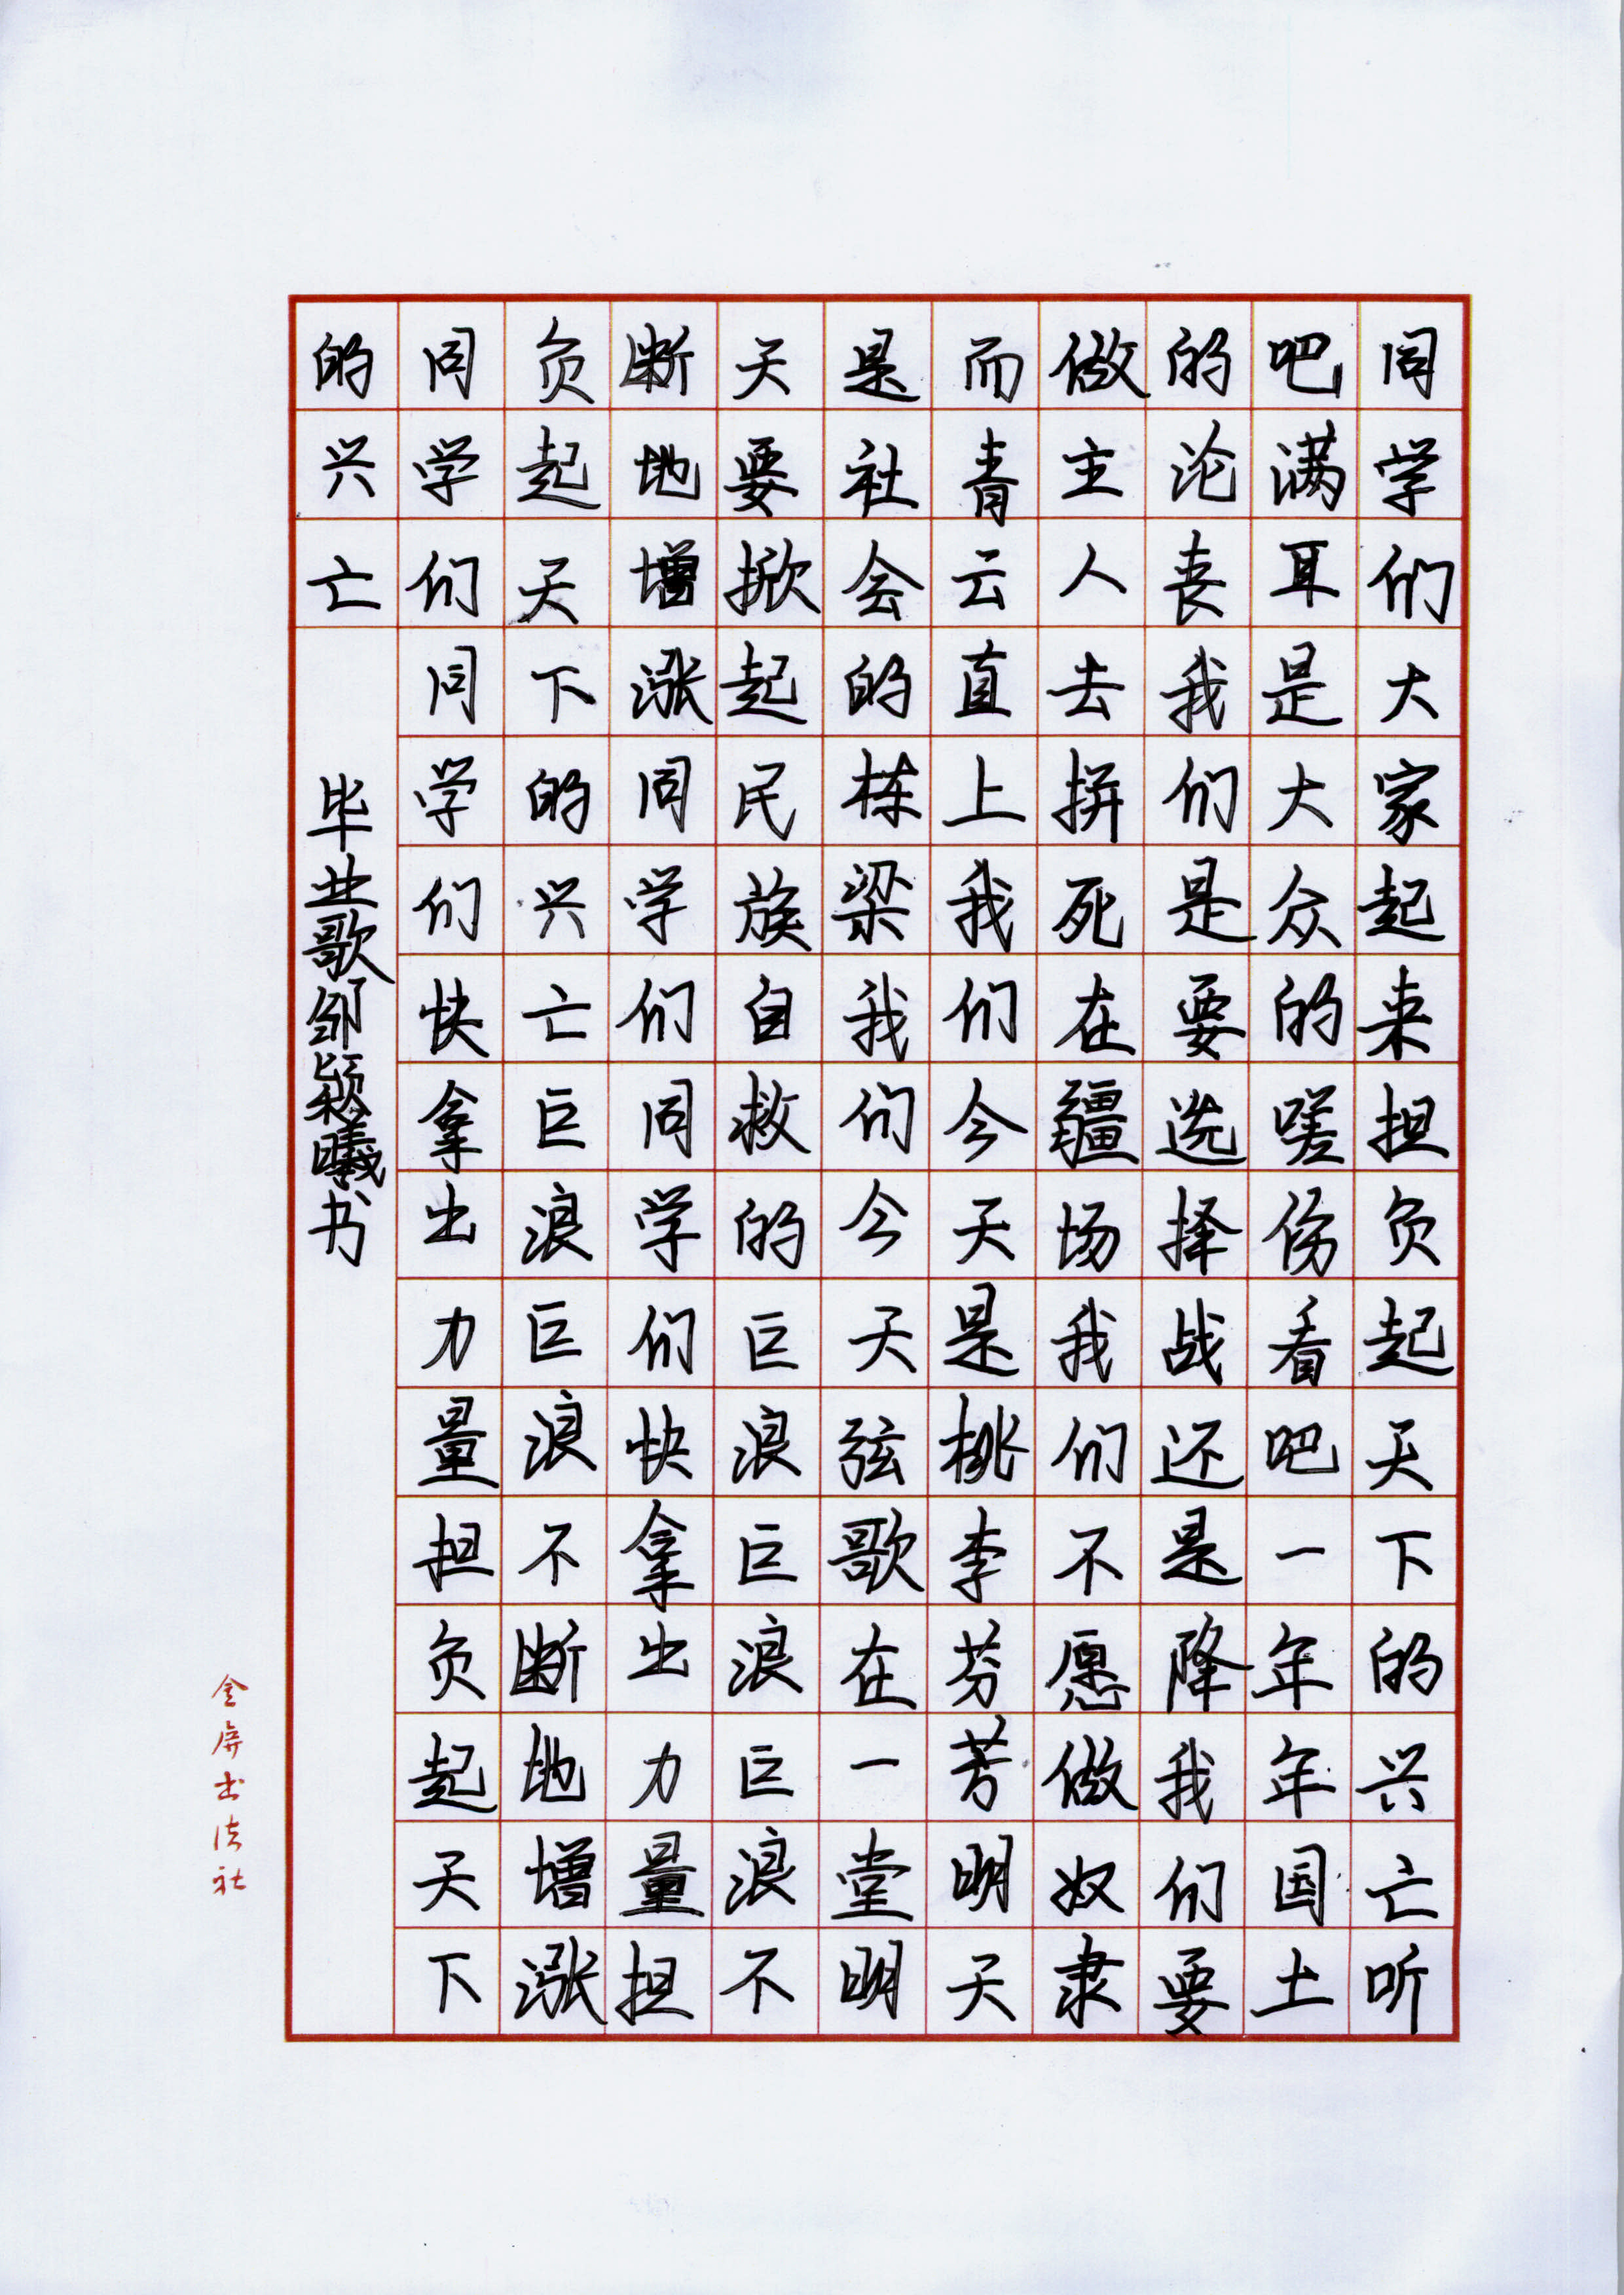 同学们大家起来担负起天下的兴亡听
吧满耳是大众的嗟伤看吧一年年国土
的沦丧我们是要选择战还是降我们要
做主人去拼死在疆场我们不愿做奴隶
而青云直上我们今天是桃李芬芳明天
是社会的栋梁我们今天弦歌在一堂明
天要掀起民族自救的巨浪巨浪巨浪不
断地增涨同学们同学们快拿出力量担
负起天下的兴亡巨浪巨浪不断地增涨
同学们同学们快拿出力量担负起天下
的兴亡 毕业歌邹颖曦书
金屏书法社